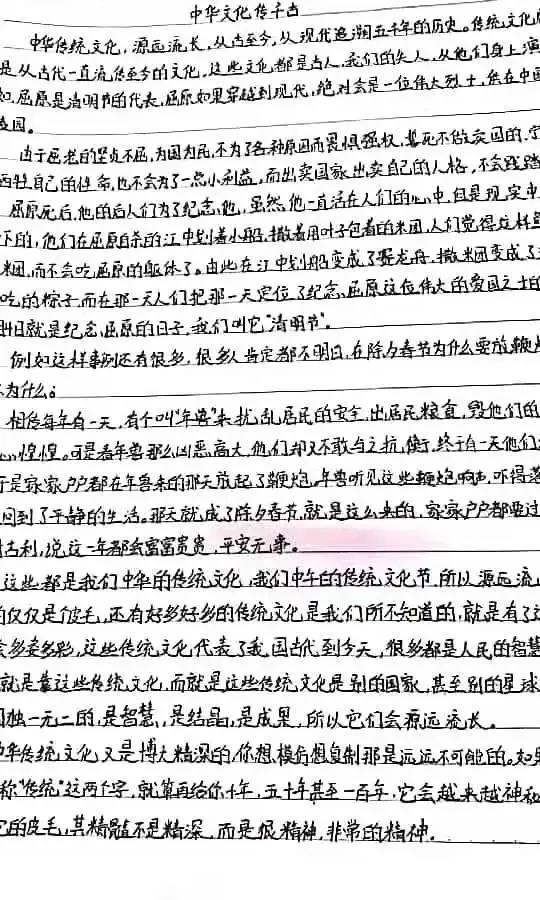 中华文化传千古
中华传统文化，源远流长，从古至今，从现代追溯五千年的历史。传统文化
是从古代一直流传至今的文化，这些文化都是古人，我们的先人，从他们身上演
如，屈原是清明节的代表，屈原如果穿越到现代，绝对会是一位伟大烈士，朱在中国
陵园。
由于屈老的坚贞不屈，为国为民，不为了各种原因而畏惧强权，誓死不做卖国的，宁
牺牲自己的性命，也不会为了一点小利益，而出卖国家出卖自己的人格，不会践踏
屈原死后，他的后人们为了纪念他，虽然他一直活在人们的心中，但是现实中
下的，他们在屈原自杀的江中划着小船，撒着用叶子包着的米团，人们觉得这样鱼
米团，而不会吃屈原的躯体了。由此在江中划船变成了赛龙舟，撒米团变成了
吃的粽子，而在那一天人们把那一天定位了纪念屈原这位伟大的爱国之士的
日就是纪念屈原的日子，我们叫它“清明节”。
例如这样事例还有很多，很多人肯定都不明白，在除夕春节为什么要放鞭炮
为什么。
相传每年有一天，有个叫“年兽”来扰乱居民的安全，出居民粮食，毁他们的
心惶惶。可是看年兽那么凶恶高大，他们却又不敢与之抗衡，终于有一天他们
于是家家户户都在年兽来的那天放起了鞭炮，年兽听见这些鞭炮响声，吓得落
回到了平静的生活。那天就成了除夕春节，就是这么来的，家家户户都要过
吉利，说这一年都会富富贵贵，平安无事。
这些都是我们中华的传统文化，我们中华的传统文化节，所以源远流
的仅仅是个皮毛，还有好多好多的传统文化是我们所不知道的，就是有了这
多姿多彩，这些传统文化代表了我国古代到今天，很多都是人民的智慧
就是靠这些传统文化，而就是这些传统文化是别的国家，甚至别的星球
独一无二的，是智慧，是结晶，是成果，所以它们会源远流长。
中华传统文化又是博大精深的，你想模仿想复制那是远远不可能的。如果
称“传统”这两个字，就算再给你十年，五十年甚至一百年，它会越来越神秘
它的皮毛，其精髓不是精深，而是很精神，非常的精神。